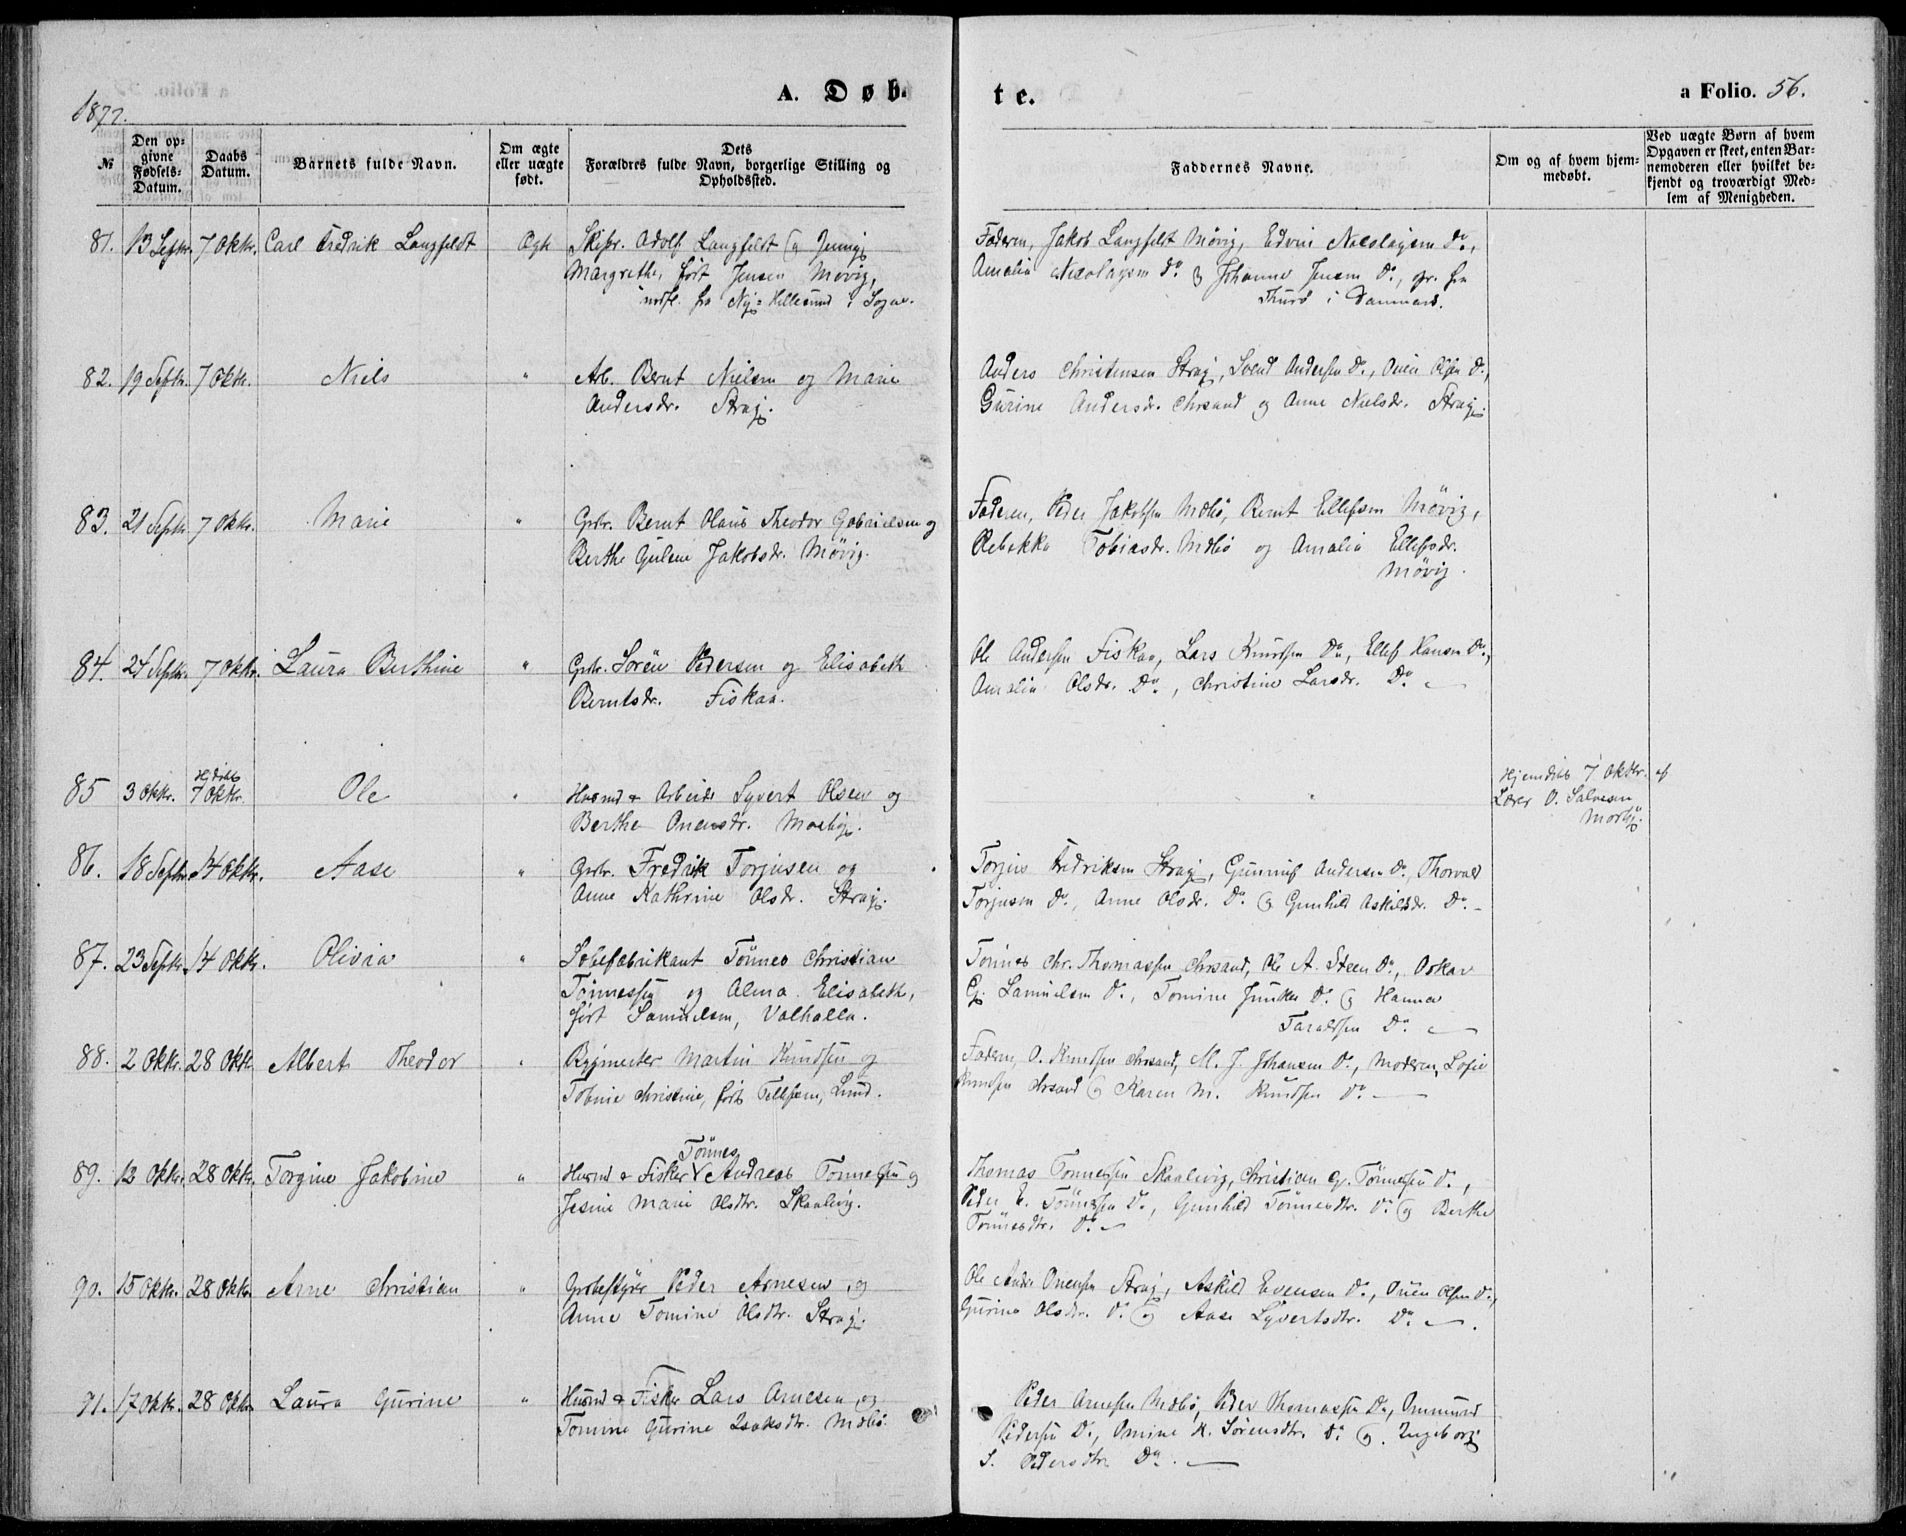 1877.
A. Døb-
te.
a Folio. 56.
№
Den op-
givne
Fødsels-
Datum.
Daabs
Datum.
Barnets fulde Navn.
Om ægte
eller uægte
født.
Dets
Forældres fulde Navn, borgerlige Stilling og
Opholdssted.
Faddernes Navne.
Om og af hvem hjem-
medøbt.
Ved uægte Børn af hvem
Opgaven er skeet, enten Bar-
nemoderen eller hvilket be-
kjendt og troværdigt Med-
lem af Menigheden.
81. 13 Septr. 7 Oktr. Carl Fredrik Langfeldt Ægte Skipr. Adolf Langfeldt og Jenny
Margrethe, født Jensen Møvig,
indfl. fra Ny-Hellesund i Sogne.
Faderen, Jakob Langfeldt Møvig, Edvin Nicolaysen Do.,
Amalia Nicolaysen Do. & Johanne Jensen Do., opr. fra
Thurø i Danmark.
82. 19 Septr. 7 Oktr. Niels " Arb. Bernt Nielsen og Marie
Andersdr. Straj.
Anders Christensen Straj, Svend Andersen Do., Ouen Olsen Do.,
Gurine Andersdr. Chrsand og Anne Nielsdr. Straj.
83. 21 Septr. 7 Oktr. Marie " Gbr. Bernt Olaus Theodor Gabrielsen og
Berthe Guline Jakobsdr. Møvig.
Faderen, Peder Jakobsen Mebø, Bernt Ellefsen Møvig,
Rebekka Tobiasdr. Mebø og Amalia Ellefsdr.
Møvig.
84. 24 Septr. 7 Oktr. Laura Berthine " Gbr. Sören Pedersen og Elisabeth
Berntsdr. Fiskaa.
Ole Andersen Fiskaa, Lars Knudsen Do., Ellef Hansen Do.,
Amalia Olsdr. Do., Christine Larsdr. Do.
85 3 Oktr. Hjdøbt
7 Oktr. Ole " Husmd & Arbeider Syvert Olsen og
Berthe Ouensdr. Mosby.
Hjemdøbt 7 Oktbr. af
Lærer O. Salvesen
Mosby.
86. 18 Septr. 14 Oktr. Aase " Gbr. Fredrik Torjusen og
Anne Kathrine Olsdr. Straj.
Torjus Fredriksen Straj, Gunnuf Andersen Do., Thorvald
Torjusen Do., Anne Olsdr. Do. og Gunhild Askildsdr. Do.
87. 23 Septr. 14 Oktr. Olivia " Sæbefabrikant Tönnes Christian
Tönnessen og Alma Elisabeth,
født Samuelsen, Valhalla.
Tönnes Chr. Thomassen Chrsand, Ole A. Steen Do., Oskar
Gj. Samuelsen Do., Tomine Junker Do. og Hanna
Taraldsen Do.
88. 2 Oktr. 28 Oktr. Albert Theodor " Bygmester Martin Knudsen og
Tobine Christine, født Tellefsen, Lund.
Faderen, O. Knudsen Chrsand, M. J. Johansen Do., Moderen, Sofie
Knudsen Chrsand og Karen M. Knudsen Do.
89. 12 Oktr. 28 Oktr. Torgine Jakobine " Husmd & Fisker Tönnes Andreas Tönnessen og
Jesine Marie Olsdtr. Skaalevig.
Thomas Tönnessen Skaalevig, Christian G. Tönnessen Do.,
Peder E. Tönnessen Do., Gunhild Tönnesdtr. Do. og Berthe
Tönnesdtr. Do.
90. 15 Oktr. 28 Oktr. Arne Christian " Gbrbestyrer Peder Arnesen og
Anne Tomine Olsdtr. Straj.
Ole Andr. Ouensen Straj, Askild Evensen Do., Ouen Olsen Do.,
Gurine Olsdtr. Do. og Aase Syvertsdtr. Do.
91. 17 Oktr. 28 Oktr. Laura Gurine " Husmd & Fisker Lars Arnesen og
Tomine Gurine Isaksdtr. Mebø.
Peder Arnesen Mebø, Peder Thomassen Do., Ommund
Pedersen Do., Omine K. Sörensdtr. Do. og Ingeborg
S. Pedersdtr. Do.